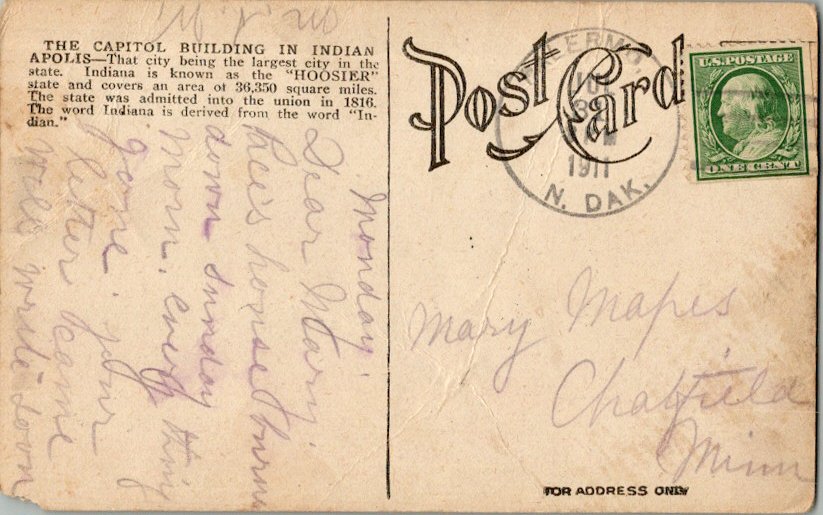 THE CAPITOL BUILDING IN INDIAN
APOLIS—That city being the largest city in the
state. Indiana is known as the "HOOSIER"
state and covers an area of 36,350 square miles.
The state was admitted into the union in 1816.
The word Indiana is derived from the word "In-
dian."
Monday.
Dear Mary.
house burn
down sunday
morn. every thing
gone. your
letter came
write down
Post Card
1911
N. DAK.
U.S. POSTAGE
ONE CENT 1
Mary Mapes
Chatfield
Minn
FOR ADDRESS ONLY